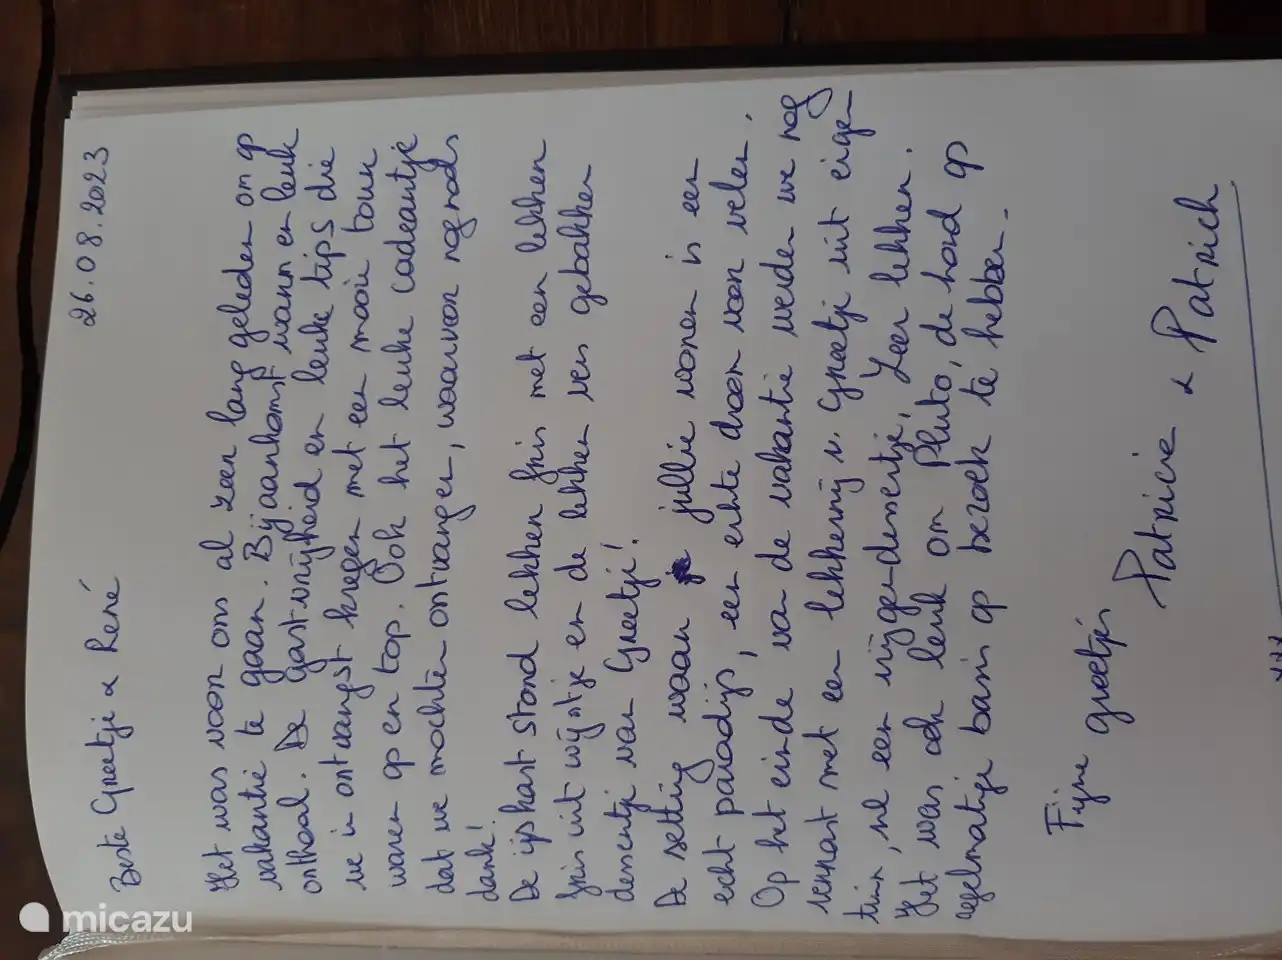 26.08.2023
Beste Greetje & René
Het was voor ons al zeer lang geleden om op
vakantie te gaan. Bij aankomst warm en leuk
onthaal. De gastvrijheid en leuke tips die
we in ontvangst kregen met een mooie tour
waren op en top. Ook het leuke cadeautje
dat we mochten ontvangen, waarvoor nogmaals
dank!
De ijskast stond lekker fris met een lekker
fris wit wijntje en de lekker vers gebakken
dessertje van Greetje!
De setting waar jullie wonen is een
echt paradijs, een echte droom voor velen.
Op het einde van de vakantie werden we nog
verrast met een lekkernij v. Greetje uit eigen
tuin, nl een vijgen-dessertje, Zeer lekker.
Het was ook leuk om Pluto, de hond op
regelmatige basis op bezoek te hebben.
Fijne greetjes
Patricia & Patrick
micazu